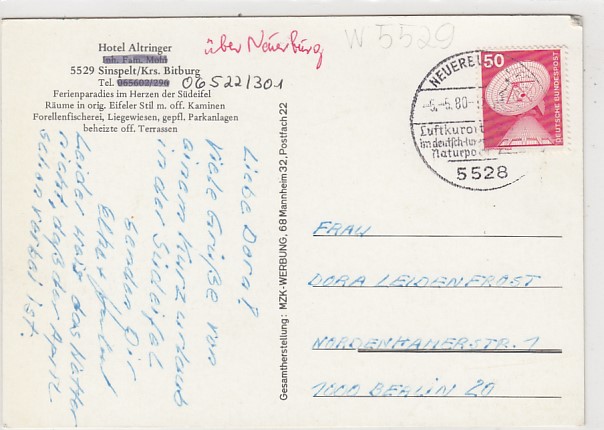 Hotel Altringer
Inh. Fam. Mohr
5529 Sinspelt/Krs. Bitburg
Tel. 065602/296 06522/301
Ferienparadies im Herzen der Südeifel
Räume in orig. Eifeler Stil m. off. Kaminen
Forellenfischerei, Liegewiesen, gepfl. Parkanlagen
beheizte off. Terrassen
über Neuerburg
W 5529
NEUERBU
-5.-5.80-1
Luftkurort
im deutsch-lux
Naturpa
5528
50
DEUTSCHE BUNDESPOST
Liebe Dora!
Viele Grüße von
einem Kurzurlaub
in der Südeifel
senden Dir
Elke +
Leider weiß das Wetter
nicht, daß der April
schon vorbei ist.
Gesamtherstellung: MZK-WERBUNG, 68 Mannheim 32, Postfach 22
FRAU
DORA LEIDENFROST
NORDENHAMERSTR. 1
1000 BERLIN 20